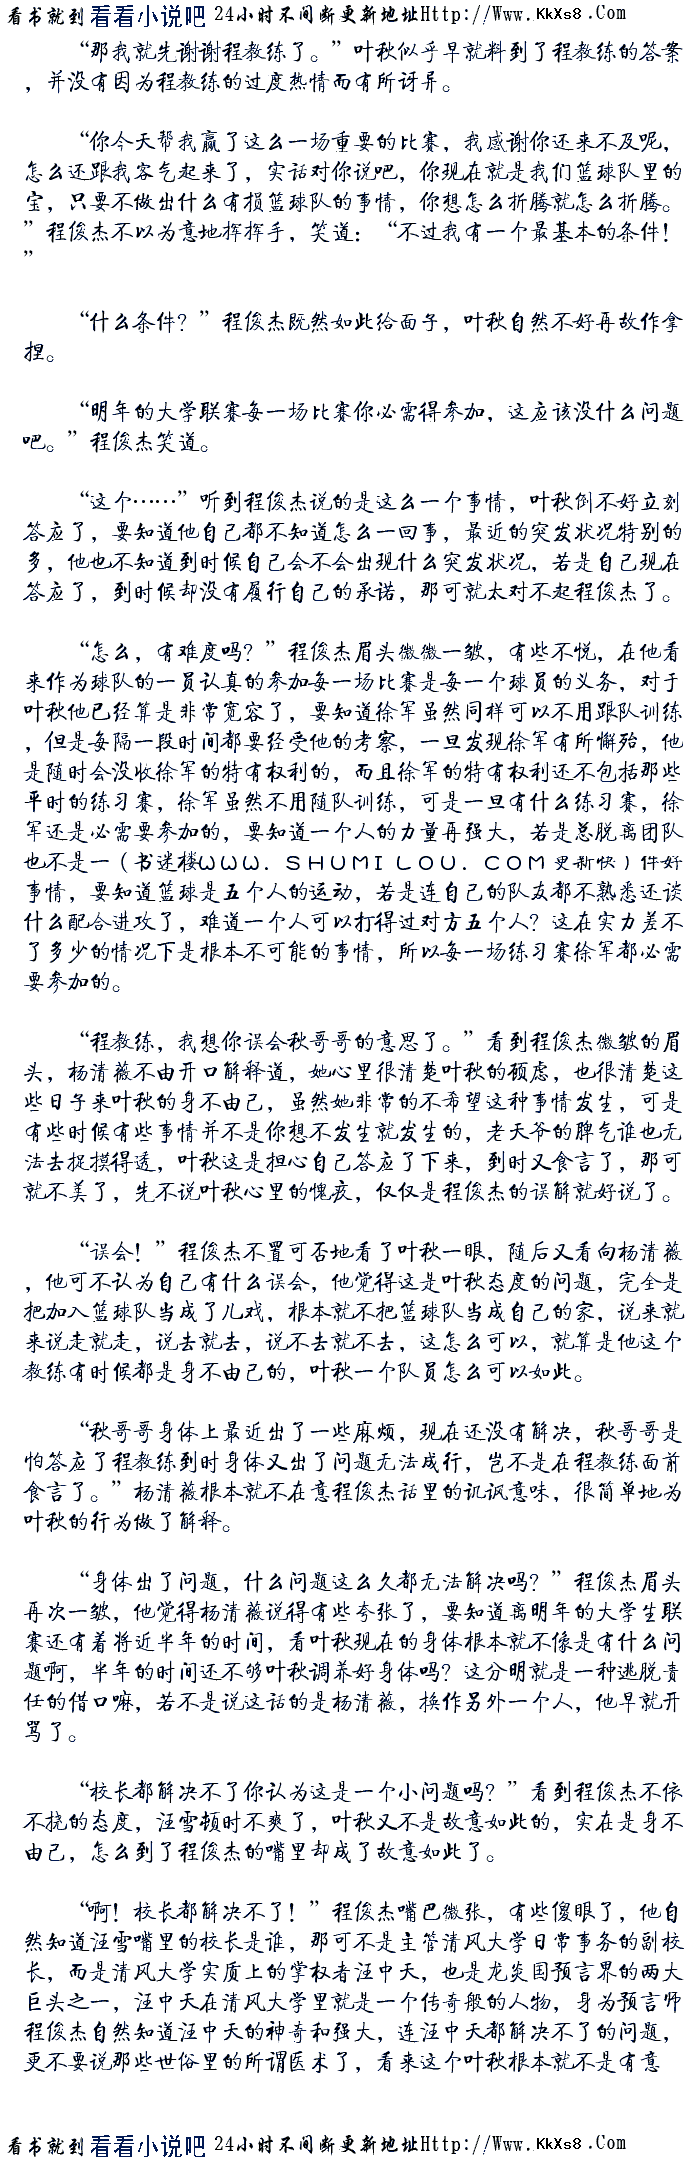 看书就到 看看小说吧 24小时不间断更新地址Http://Www.KkXs8.Com
“那我就先谢谢程教练了。”叶秋似乎早就料到了程教练的答案
，并没有因为程教练的过度热情而有所讶异。
“你今天帮我赢了这么一场重要的比赛，我感谢你还来不及呢，
怎么还跟我客气起来了，实话对你说吧，你现在就是我们篮球队里的
宝，只要不做出什么有损篮球队的事情，你想怎么折腾就怎么折腾。
”程俊杰不以为意地挥挥手，笑道：“不过我有一个最基本的条件！
”
“什么条件？”程俊杰既然如此给面子，叶秋自然不好再故作拿
捏。
“明年的大学联赛每一场比赛你必需得参加，这应该没什么问题
吧。”程俊杰笑道。
“这个……”听到程俊杰说的是这么一个事情，叶秋倒不好立刻
答应了，要知道他自己都不知道怎么一回事，最近的突发状况特别的
多，他也不知道到时候自己会不会出现什么突发状况，若是自己现在
答应了，到时候却没有履行自己的承诺，那可就太对不起程俊杰了。
“怎么，有难度吗？”程俊杰眉头微微一皱，有些不悦，在他看
来作为球队的一员认真的参加每一场比赛是每一个球员的义务，对于
叶秋他已经算是非常宽容了，要知道徐军虽然同样可以不用跟队训练
，但是每隔一段时间都要经受他的考察，一旦发现徐军有所懈殆，他
是随时会没收徐军的特有权利的，而且徐军的特有权利还不包括那些
平时的练习赛，徐军虽然不用随队训练，可是一旦有什么练习赛，徐
军还是必需要参加的，要知道一个人的力量再强大，若是总脱离团队
也不是一（书迷楼ＷＷＷ．ＳＨＵＭＩＬＯＵ．ＣＯＭ更新快）件好
事情，要知道篮球是五个人的运动，若是连自己的队友都不熟悉还谈
什么配合进攻了，难道一个人可以打得过对方五个人？这在实力差不
了多少的情况下是根本不可能的事情，所以每一场练习赛徐军都必需
要参加的。
“程教练，我想你误会秋哥哥的意思了。”看到程俊杰微皱的眉
头，杨清薇不由开口解释道，她心里很清楚叶秋的顾虑，也很清楚这
些日子来叶秋的身不由己，虽然她非常的不希望这种事情发生，可是
有些时候有些事情并不是你想不发生就发生的，老天爷的脾气谁也无
法去捉摸得透，叶秋这是担心自己答应了下来，到时又食言了，那可
就不美了，先不说叶秋心里的愧疚，仅仅是程俊杰的误解就好说了。
“误会！”程俊杰不置可否地看了叶秋一眼，随后又看向杨清薇
，他可不认为自己有什么误会，他觉得这是叶秋态度的问题，完全是
把加入篮球队当成了儿戏，根本就不把篮球队当成自己的家，说来就
来说走就走，说去就去，说不去就不去，这怎么可以，就算是他这个
教练有时候都是身不由己的，叶秋一个队员怎么可以如此。
“秋哥哥身体上最近出了一些麻烦，现在还没有解决，秋哥哥是
怕答应了程教练到时身体又出了问题无法成行，岂不是在程教练面前
食言了。”杨清薇根本就不在意程俊杰话里的讥讽意味，很简单地为
叶秋的行为做了解释。
“身体出了问题，什么问题这么久都无法解决吗？”程俊杰眉头
再次一皱，他觉得杨清薇说得有些夸张了，要知道离明年的大学生联
赛还有着将近半年的时间，看叶秋现在的身体根本就不像是有什么问
题啊，半年的时间还不够叶秋调养好身体吗？这分明就是一种逃脱责
任的借口嘛，若不是说这话的是杨清薇，换作另外一个人，他早就开
骂了。
“校长都解决不了你认为这是一个小问题吗？”看到程俊杰不依
不挠的态度，汪雪顿时不爽了，叶秋又不是故意如此的，实在是身不
由己，怎么到了程俊杰的嘴里却成了故意如此了。
“啊！校长都解决不了！”程俊杰嘴巴微张，有些傻眼了，他自
然知道汪雪嘴里的校长是谁，那可不是主管清风大学日常事务的副校
长，而是清风大学实质上的掌权者汪中天，也是龙炎国预言界的两大
巨头之一，汪中天在清风大学里就是一个传奇般的人物，身为预言师
程俊杰自然知道汪中天的神奇和强大，连汪中天都解决不了的问题，
更不要说那些世俗里的所谓医术了，看来这个叶秋根本就不是有意
看书就到 看看小说吧 24小时不间断更新地址Http://Www.KkXs8.Com